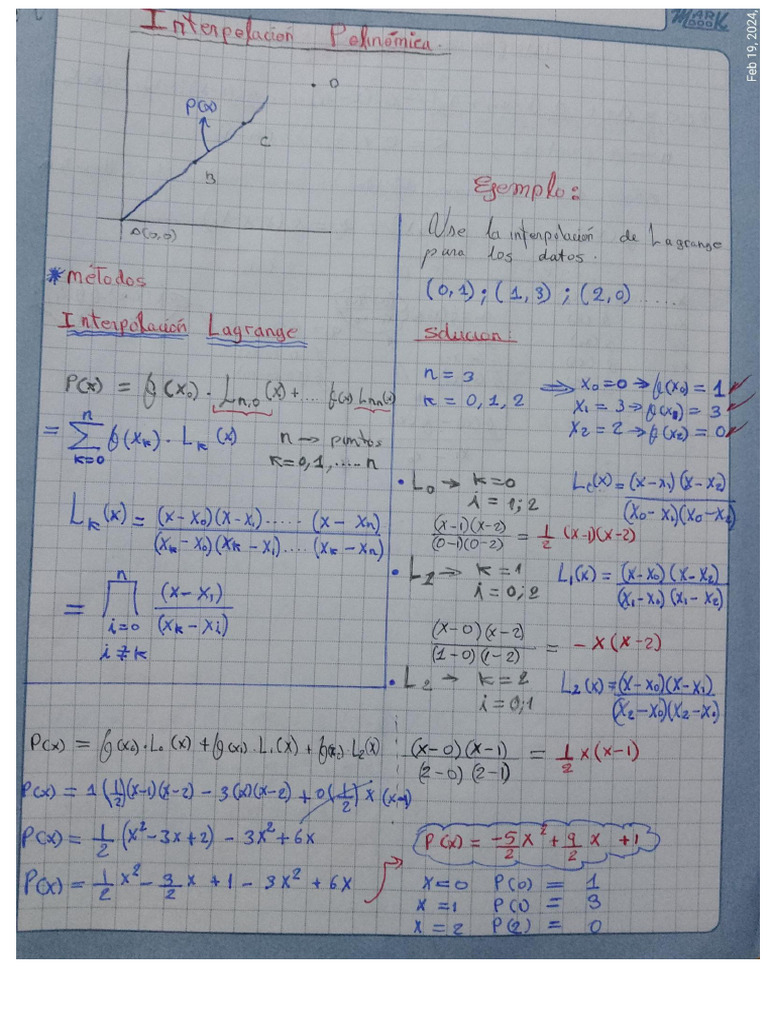 MARK BOOK
Feb 19, 2024,
Interpolación Polinómica.
D
P(x)
C
B
A(0,0)
*métodos
Interpolación Lagrange
P(x) = f(x₀) · Lₙ,₀(x) + ... f(x) Lₙₙ(x)
= ∑ₖ₌₀ⁿ f(xₖ) · Lₖ(x) n → puntos
k = 0,1, ..... n
Lₖ(x) = (x-x₀)(x-x₁) ..... (x-xₙ) / (xₖ-x₀)(xₖ-x₁) .... (xₖ-xₙ)
= ∏ⁿ (x-x₁) / (xₖ-xᵢ)
i=0
i≠k
Ejemplo:
Use la interpolación de Lagrange
para los datos.
(0,1) ; (1,3) ; (2,0) .....
solucion:
n = 3
k = 0, 1, 2
⇒ x₀ = 0 → f(x₀) = 1 ✓
x₁ = 3 → f(x₁) = 3 ✓
x₂ = 2 → f(x₂) = 0 ✓
• L₀ → k=0 L₀(x) = (x-x₁)(x-x₂) / (x₀-x₁)(x₀-x₂)
i = 1;2
(x-1)(x-2) / (0-1)(0-2) = 1/2 (x-1)(x-2)
• L₁ → k = 1 L₁(x) = (x-x₀)(x-x₂) / (x₁-x₀)(x₁-x₂)
i = 0;2
(x-0)(x-2) / (1-0)(1-2) = -x(x-2)
• L₂ → k = 2 L₂(x) = (x-x₀)(x-x₁) / (x₂-x₀)(x₂-x₁)
i = 0;1
(x-0)(x-1) / (2-0)(2-1) = 1/2 x(x-1)
P(x) = f(x₀) · L₀(x) + f(x₁) · L₁(x) + f(x₂) · L₂(x)
P(x) = 1(1/2)(x-1)(x-2) - 3(x)(x-2) + 0(1/2) x (x-1)
P(x) = 1/2 (x²-3x+2) - 3x²+6x
P(x) = 1/2 x² - 3/2 x + 1 - 3x² + 6x
P(x) = -5/2 x² + 9/2 x + 1
x=0 P(0) = 1
x=1 P(1) = 3
x=2 P(2) = 0